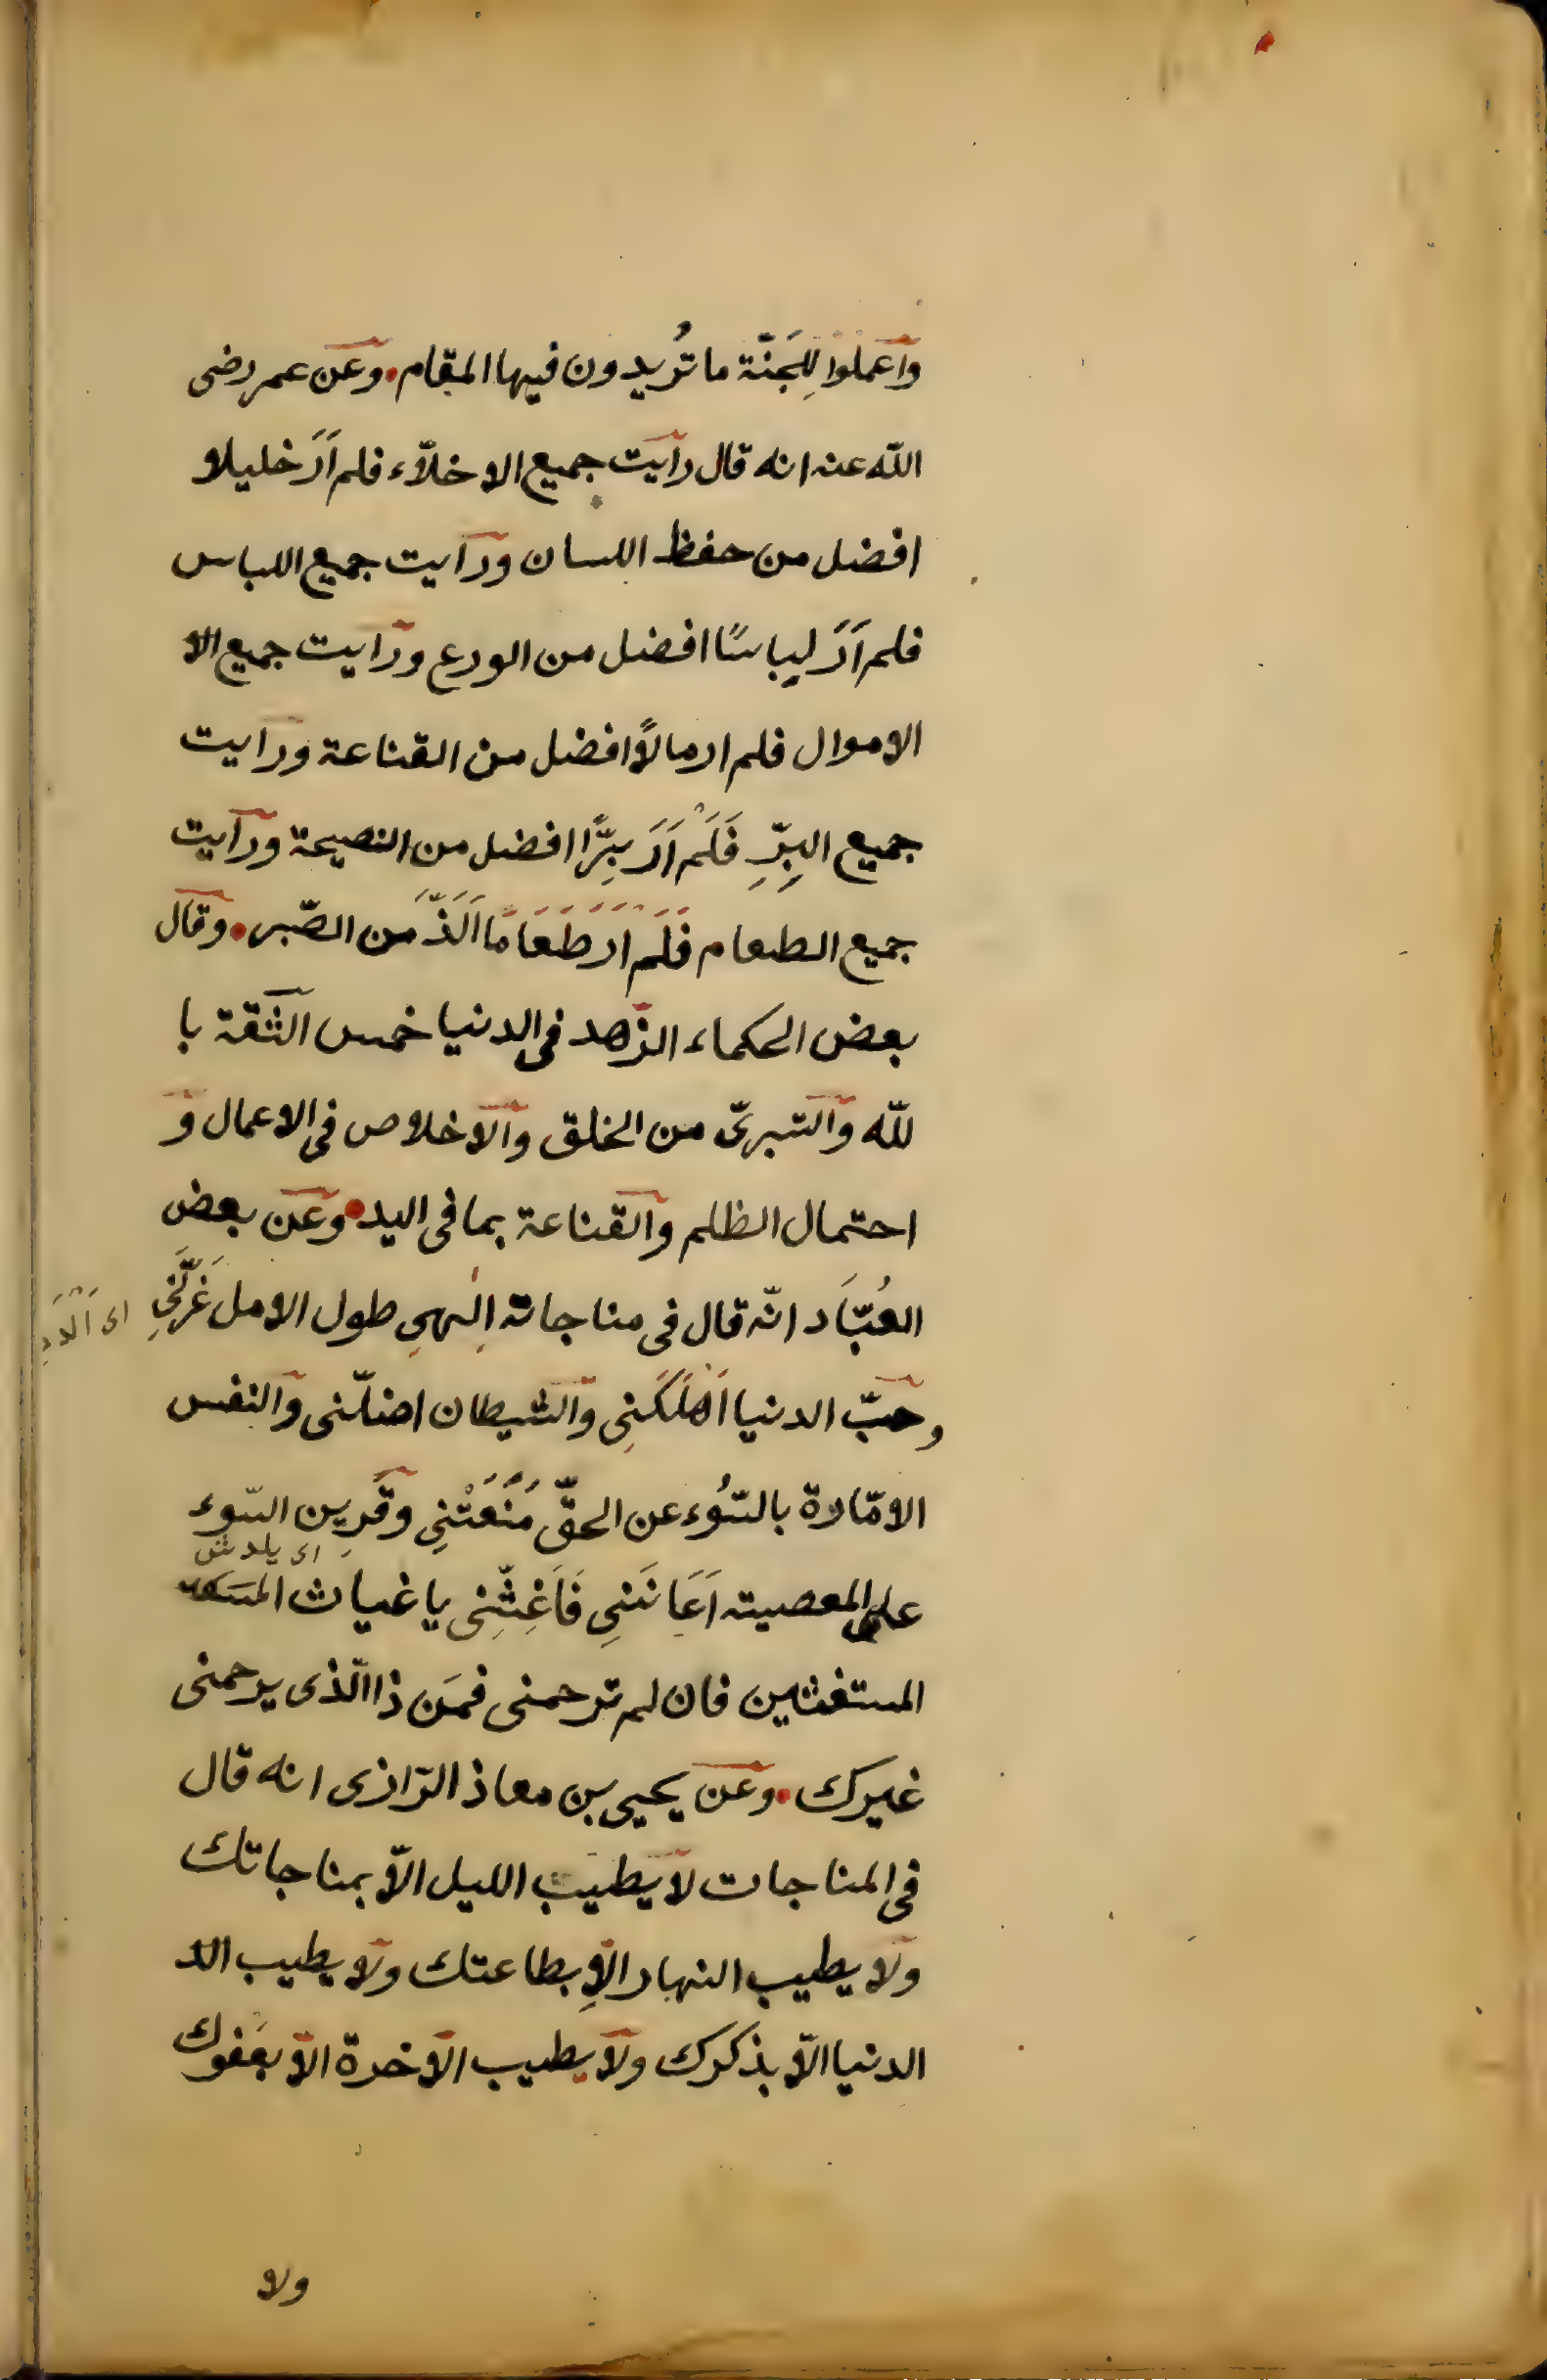 واعملوا لِلجَنّة ما تُريدون فيها المقام. وعن عمر رضى
الله عنه انه قال رايت جميع الاخلّاء فلم اَرَ خليلا
افضل من حفظ اللسان ورايت جميع اللباس
فلم اَرَ لِباسًا افضل من الورع ورايت جميع الا
الاموال فلم ار مالًا افضل من القناعة ورايت
جميع البِرِّ فَلَمْ اَرَ بِرًّا افضل من النصيحة ورايت
جميع الطعام فَلَمْ اَرَ طَعَامًا اَلَذَّ من الصّبر. وقال
بعض الحكماء الزهد فى الدنيا خمس الثقة با
لله والتبرىّ من الخلق والاخلاص فى الاعمال و
احتمال الظلم والقناعة بما فى اليد. وعن بعض
العُبّاَد انّه قال فى مناجاته اِلٰهىِ طول الامل غَرَّنىِ
وحبّ الدنيا اَهْلَكَنِى والشيطان اضلّنى والنفس
الامّارة بالسّوُء عن الحقّ مَنَعَتْنِى وقَرِين السّوء
اى يلدش
على المعصيته اَعَانَنىِ فَاَغِثْنِى يا غياث
المستغثين فان لم ترحمنى فمَن ذا الّذى يرحمنى
غيرك. وعن يحيى بن معاذ الرّازى انه قال
فى المناجات لا يطيب الليل الّا بمناجاتك
ولا يطيب النهار الّاِ بطاعتك ولا يطيب الد
الدنيا الّا بذكرك ولا يطيب الآخرة الّا بعَفوك
ولا